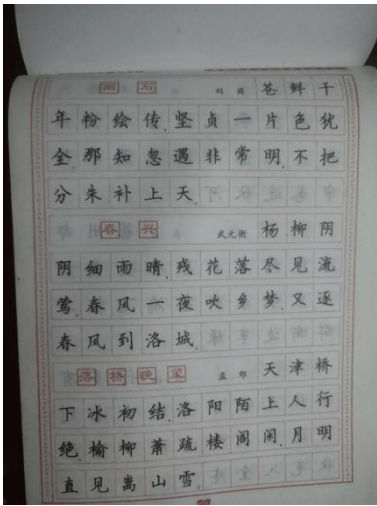 画石 刘商 苍鲜千
年粉绘传。坚贞一片色犹
全。那知忽遇非常明。不把
分朱补上天。
春兴 武元衡 杨柳阴
阴细雨晴。残花落尽见流
莺。春风一夜吹乡梦。又逐
春风到洛城。
洛桥晚望 孟郊 天津桥
下冰初结。洛阳陌上人行
绝。榆柳萧疏楼阁闲。月明
直见嵩山雪。